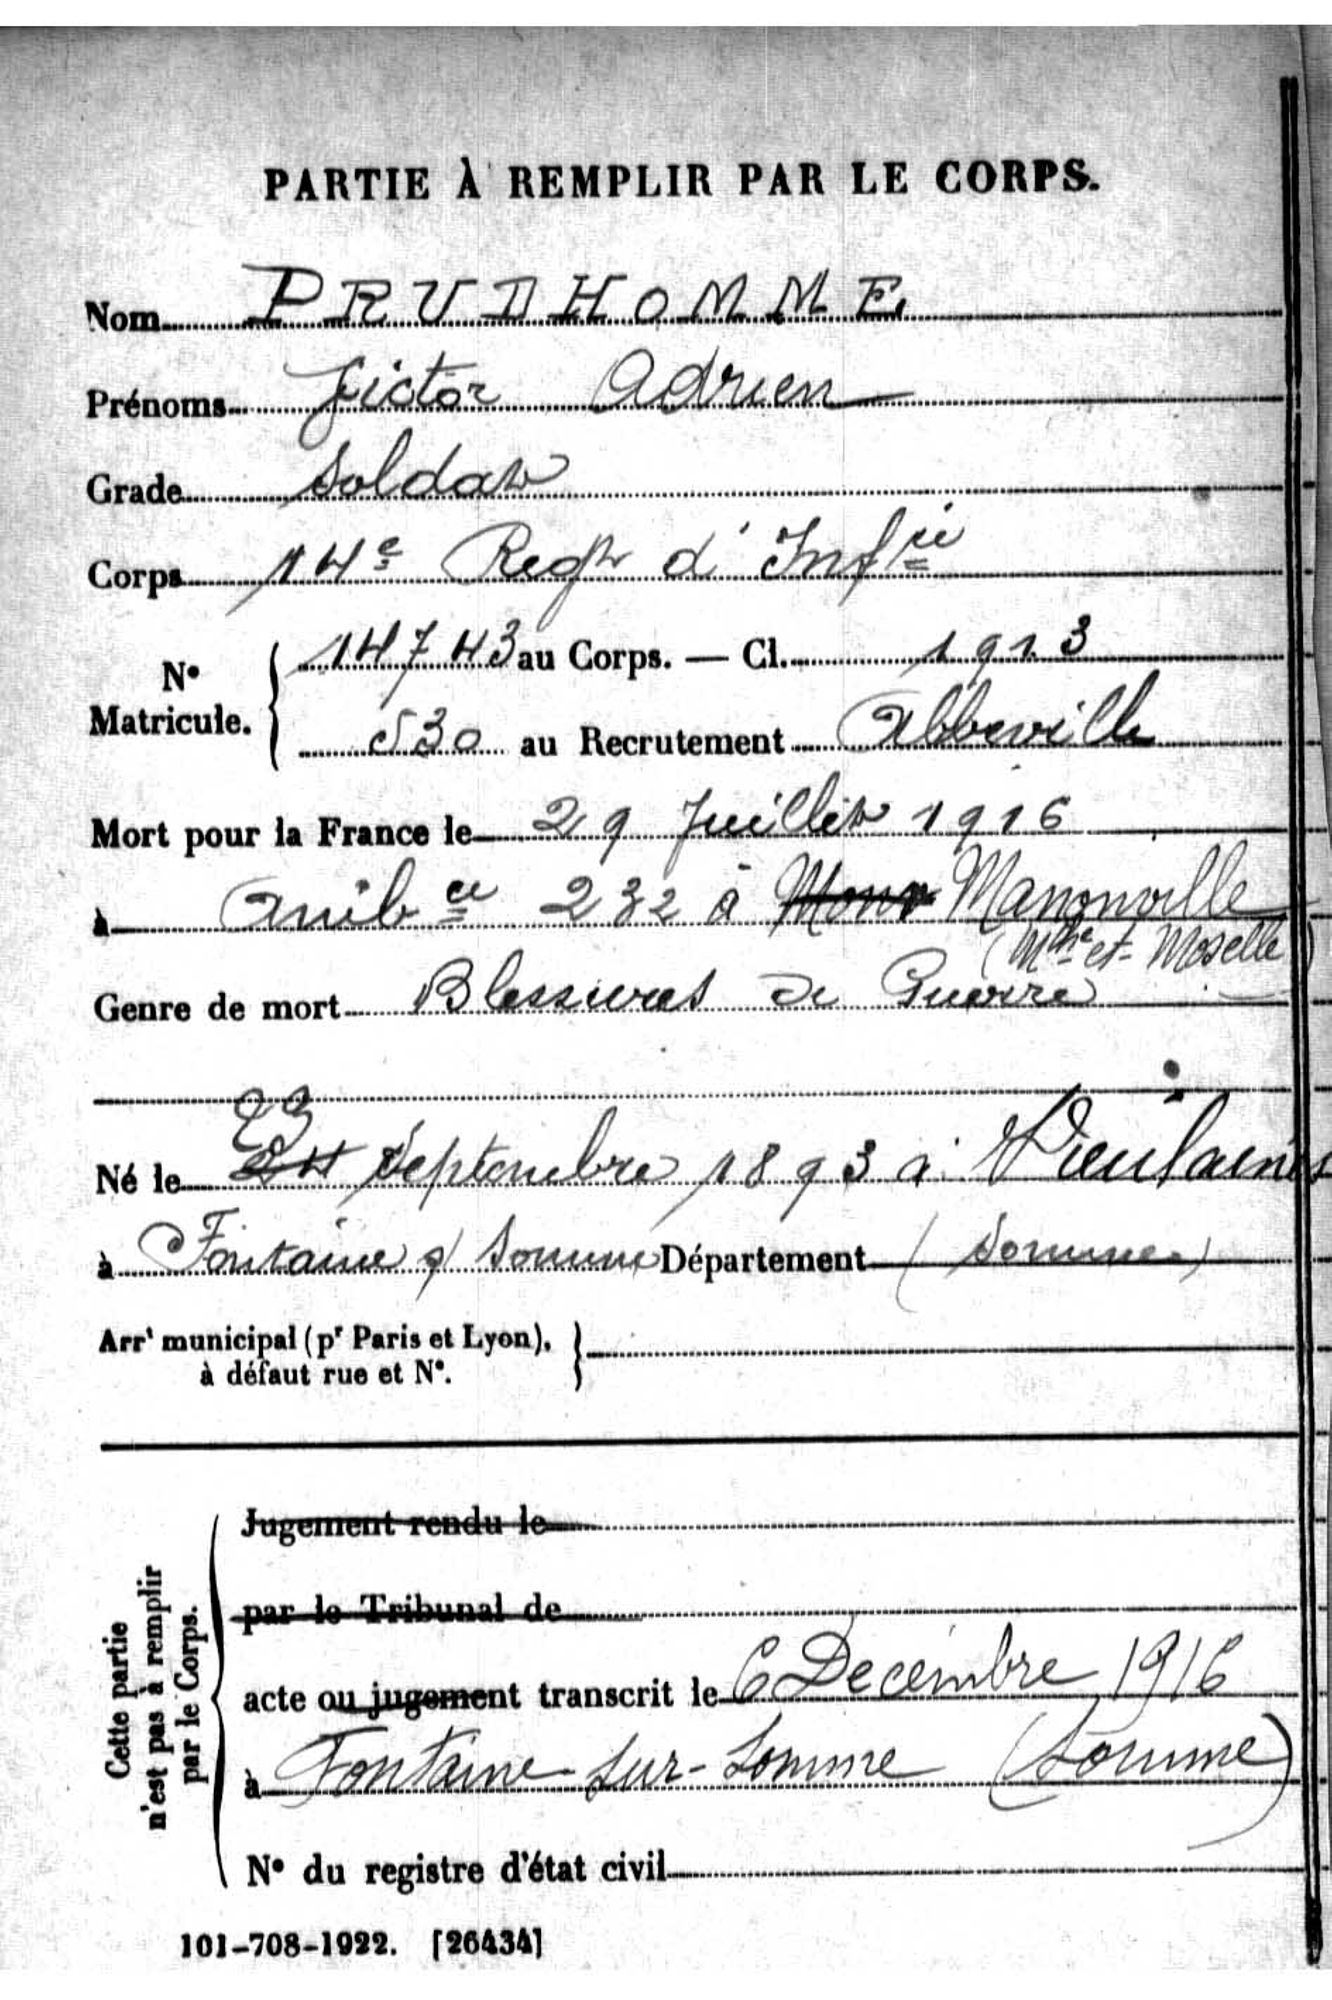 PARTIE À REMPLIR PAR LE CORPS.
Nom PRUDHOMME
Prénoms Victor Adrien
Grade Soldat
Corps 14e Regt d'Infie
N° Matricule. 14743 au Corps. — Cl. 1913
530 au Recrutement Abbeville
Mort pour la France le 29 Juillet 1916
à Ambce 232 à Manonville
(Mthe et-Moselle)
Genre de mort Blessures de Guerre
23
Né le 24 Septembre 1893 à Vieulaines
à Fontaine s/ Somme Département (Somme)
Arrt municipal (pr Paris et Lyon),
à défaut rue et N°.
Cette partie
n'est pas à remplir
par le Corps.
Jugement rendu le
par le Tribunal de
acte ou jugement transcrit le 6 Decembre 1916
à Fontaine-sur-Somme (Somme)
N° du registre d'état civil
101-708-1922. [26434]